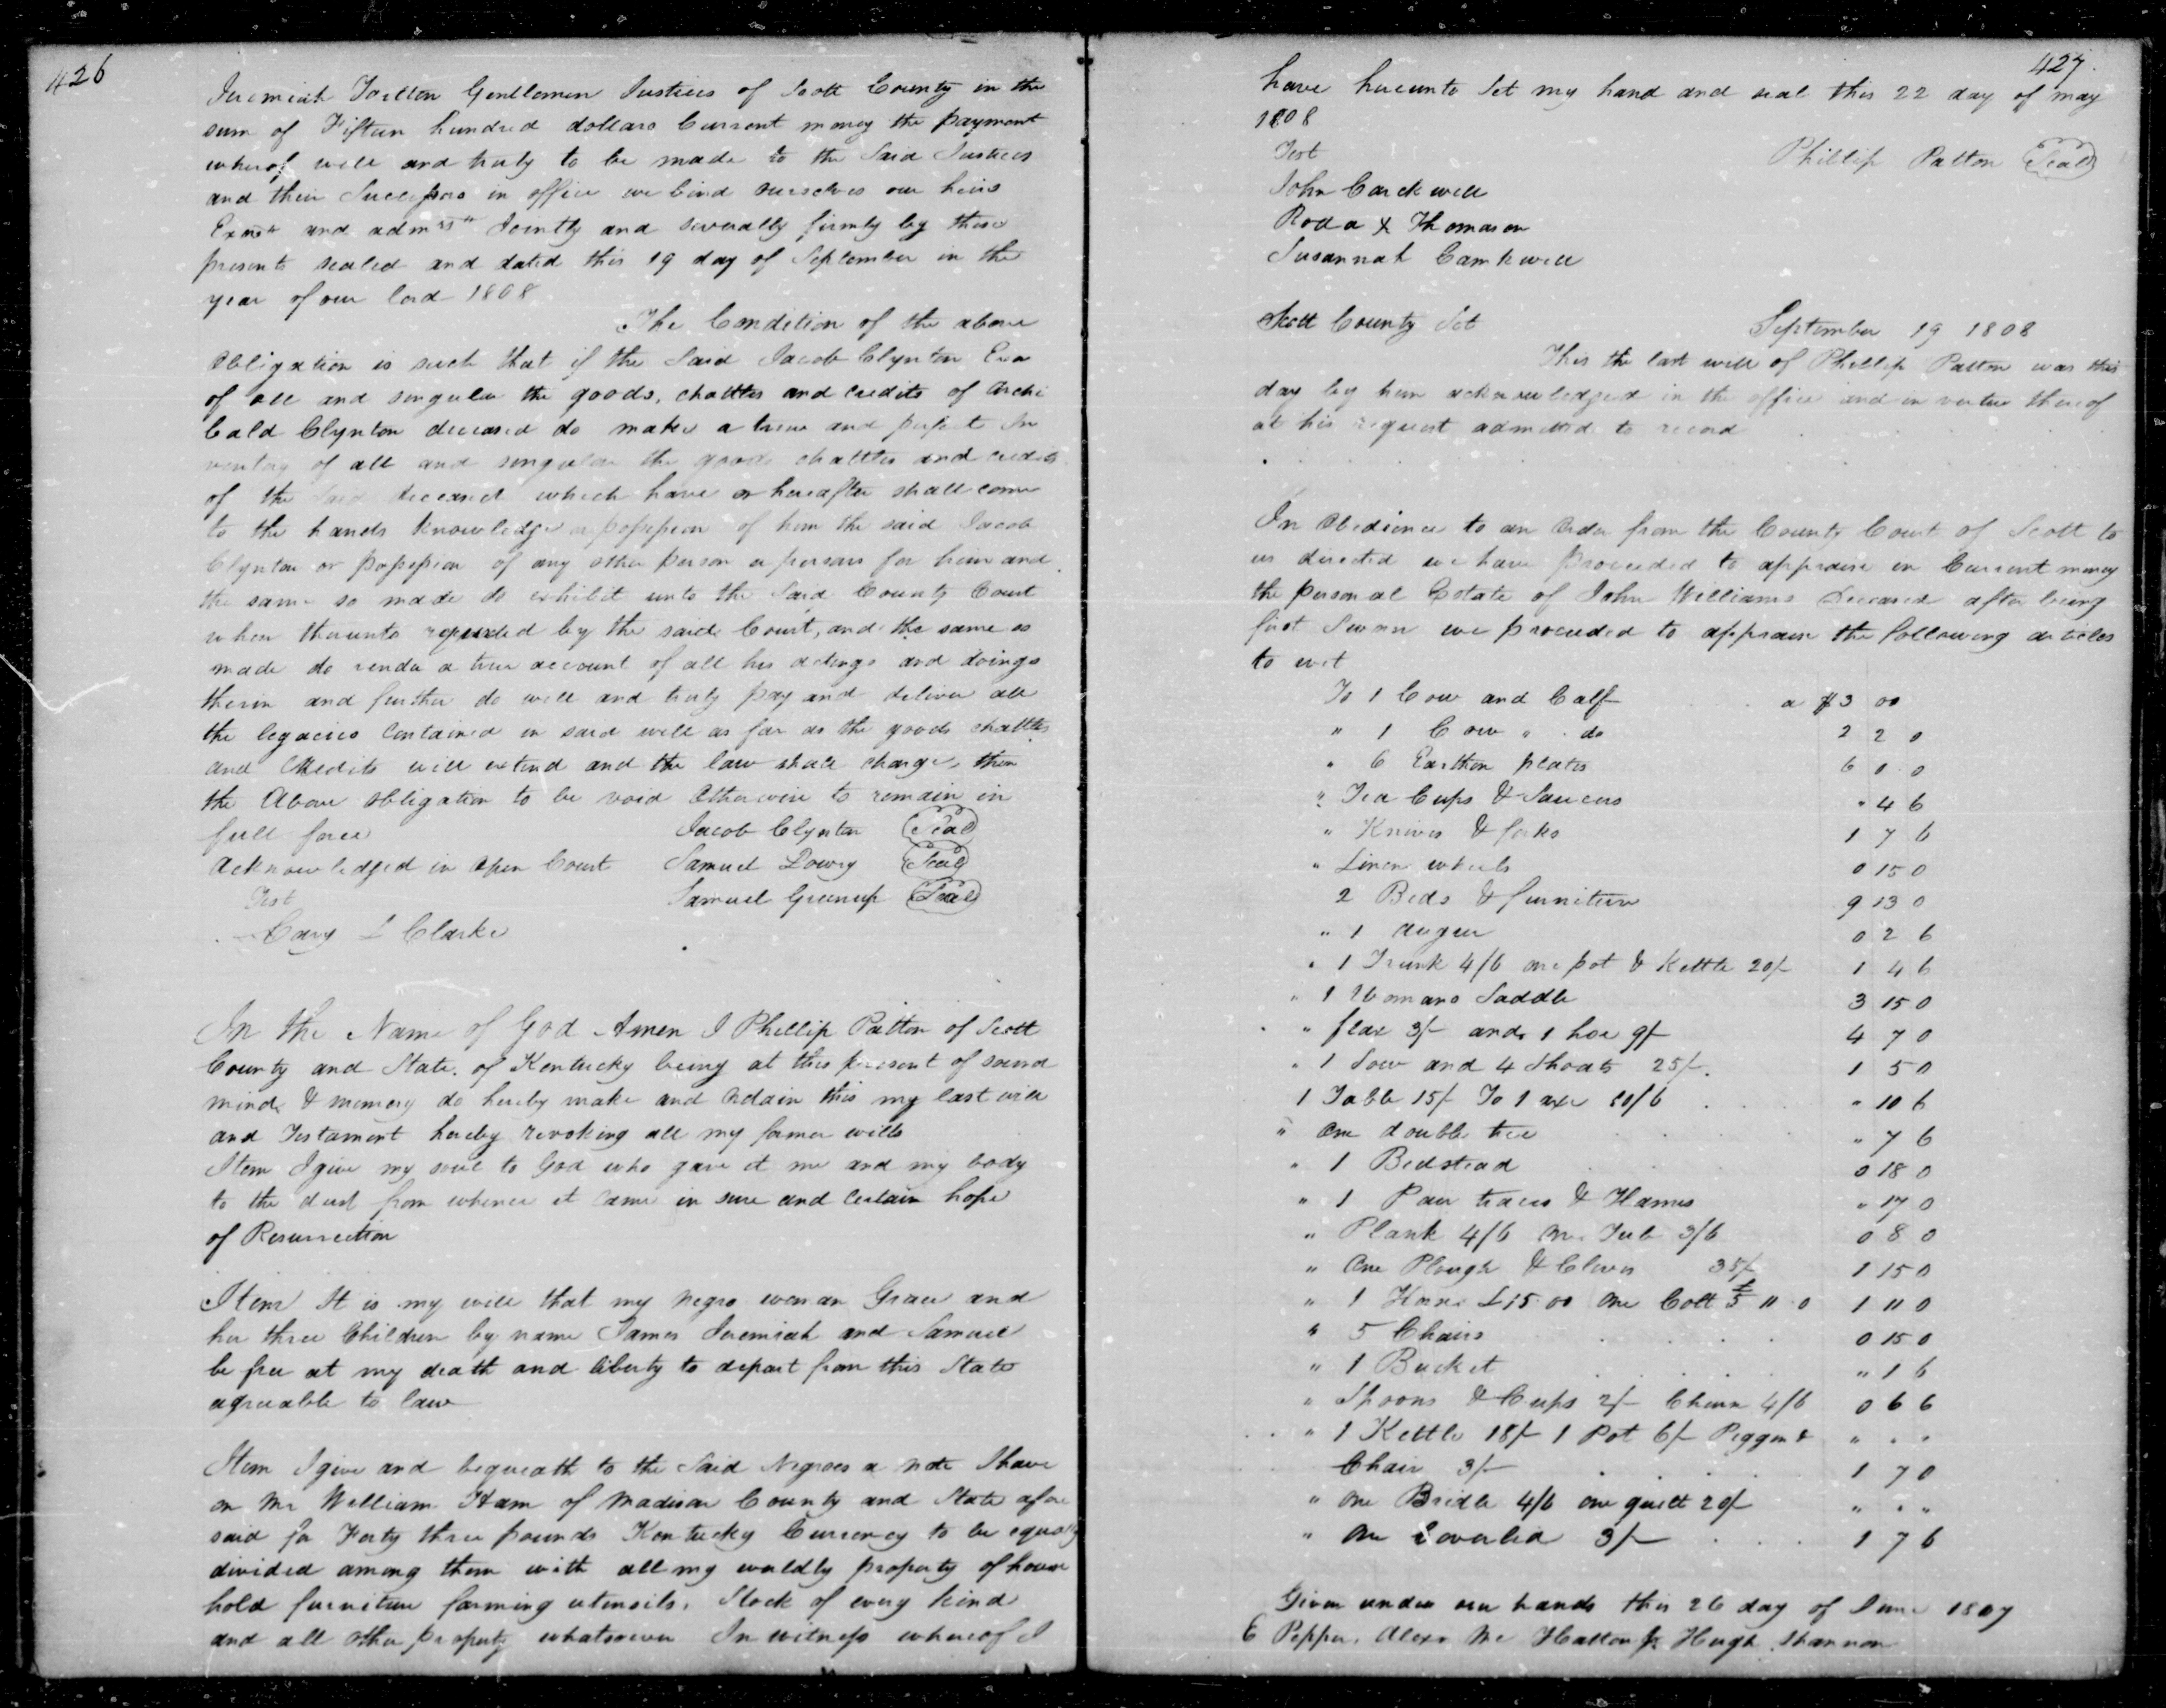 426
Jeremiah Tarlton Gentlemen Justices of Scott County in the
sum of Fifteen hundred dollars Current money the payment
wherof well and truly to be made to the Said Justices
and their Successors in office we bind ourselves our heirs
and Jointly and severally firmly by these
presents sealed and dated this 19 day of September in the
year of our lord 1808
The Condition of the above
Obligation is such that if the Said Jacob Clynton Exor
of all and singular the goods, chattles and credits of Archi
bald Clynton deceased do make a true and perfect In
ventory of all and singular the goods chattles and credits
of the Said deceased which have or hereafter shall come
to the hands knowledge or possession of him the said Jacob
Clynton or possession of any other person or persons for him and
the same so made do exhibit unto the Said County Court
when thereunto required by the said Court, and the same so
made do render a true account of all his actings and doings
therin and further do well and truly pay and deliver all
the legacies Contained in said will as far as the goods chattles
and Credits will extend and the law shall charge, then
the Above obligation to be void Otherwise to remain in
full force Jacob Clynton Seal
Acknowledged in open Court Samuel Lowry Seal
Test Samuel Greenup Seal
Cary L Clarke
In the Name of God Amen I Phillip Patton of Scott
County and State of Kentucky being at this present of sound
mind & memory do hereby make and Ordain this my last will
and Testament hereby revoking all my former wills
Item I give my soul to God who gave it me and my body
to the dust from whence it came in sure and certain hope
of Resurrection
Item It is my will that my negro woman Grace and
her three Children by name James Jeremiah and Samuel
be free at my death and liberty to depart from this State
agreeable to law
Item I give and bequeath to the Said Negroes a note I have
on Mr William Ham of Madison County and State afore
said for Forty three pounds Kentucky Currency to be equally
divided among them with all my worldly property of house
hold furniture farming utensils, Stock of every kind
and all other property whatsoever In witness whereof I
427.
have hereunto Set my hand and seal this 22 day of may
1808
Test Phillip Patton Seal
John Carckwell
Roda X Thomason
Susannah Camkwell
Scott County Sct September 19 1808
This the last will of Phillip Patton was this
day by him acknowledged in the office and in vertue thereof
at his request admitted to record
In Obedience to an Order from the County Court of Scott to
us directed we have proceeded to appraise in Current money
the personal Estate of John Williams Deceased after being
first Sworn we proceeded to appraise the following articles
to wit
To 1 Cow and Calf a $3 00
" 1 Cow " do 2 2 0
" 6 Earthen plates 6 0 0
" Tea Cups & Saucers " 4 6
" Knives & forks 1 7 6
" Linen wheels 0 15 0
2 Beds & furniture 9 13 0
" 1 auger 0 2 6
" 1 Trunk 4/6 one pot & Kettle 20/ 1 4 6
" 1 Womans Saddle 3 15 0
" flax 3/- and 1 hoe 9/- 4 7 0
" 1 Sow and 4 Shoats 25/- 1 5 0
1 Table 15/- To 1 axe 10/6 " 10 6
" One double tree " 7 6
" 1 Bedstead 0 18 0
" 1 Pair traces & Hames " 17 0
" Plank 4/6 one Tub 3/6 0 8 0
" One Plough & Clevis 35/- 1 15 0
" 1 Horse £15 00 one Colt £5 11 0 1 11 0
" 5 Chairs 0 15 0
" 1 Bucket " 1 6
" Spoons & Cups 2/- Churn 4/6 0 6 6
" 1 Kettle 18/- 1 Pot 6/- Piggin & " " "
Chair 3/- 1 7 0
" one Bridle 4/6 one quilt 20/- " " "
" one Coverlid 3/- 1 7 6
Given under our hands this 26 day of June 1807
E Pepper, Alexr Mc Hatton Jr Hugh Shannon